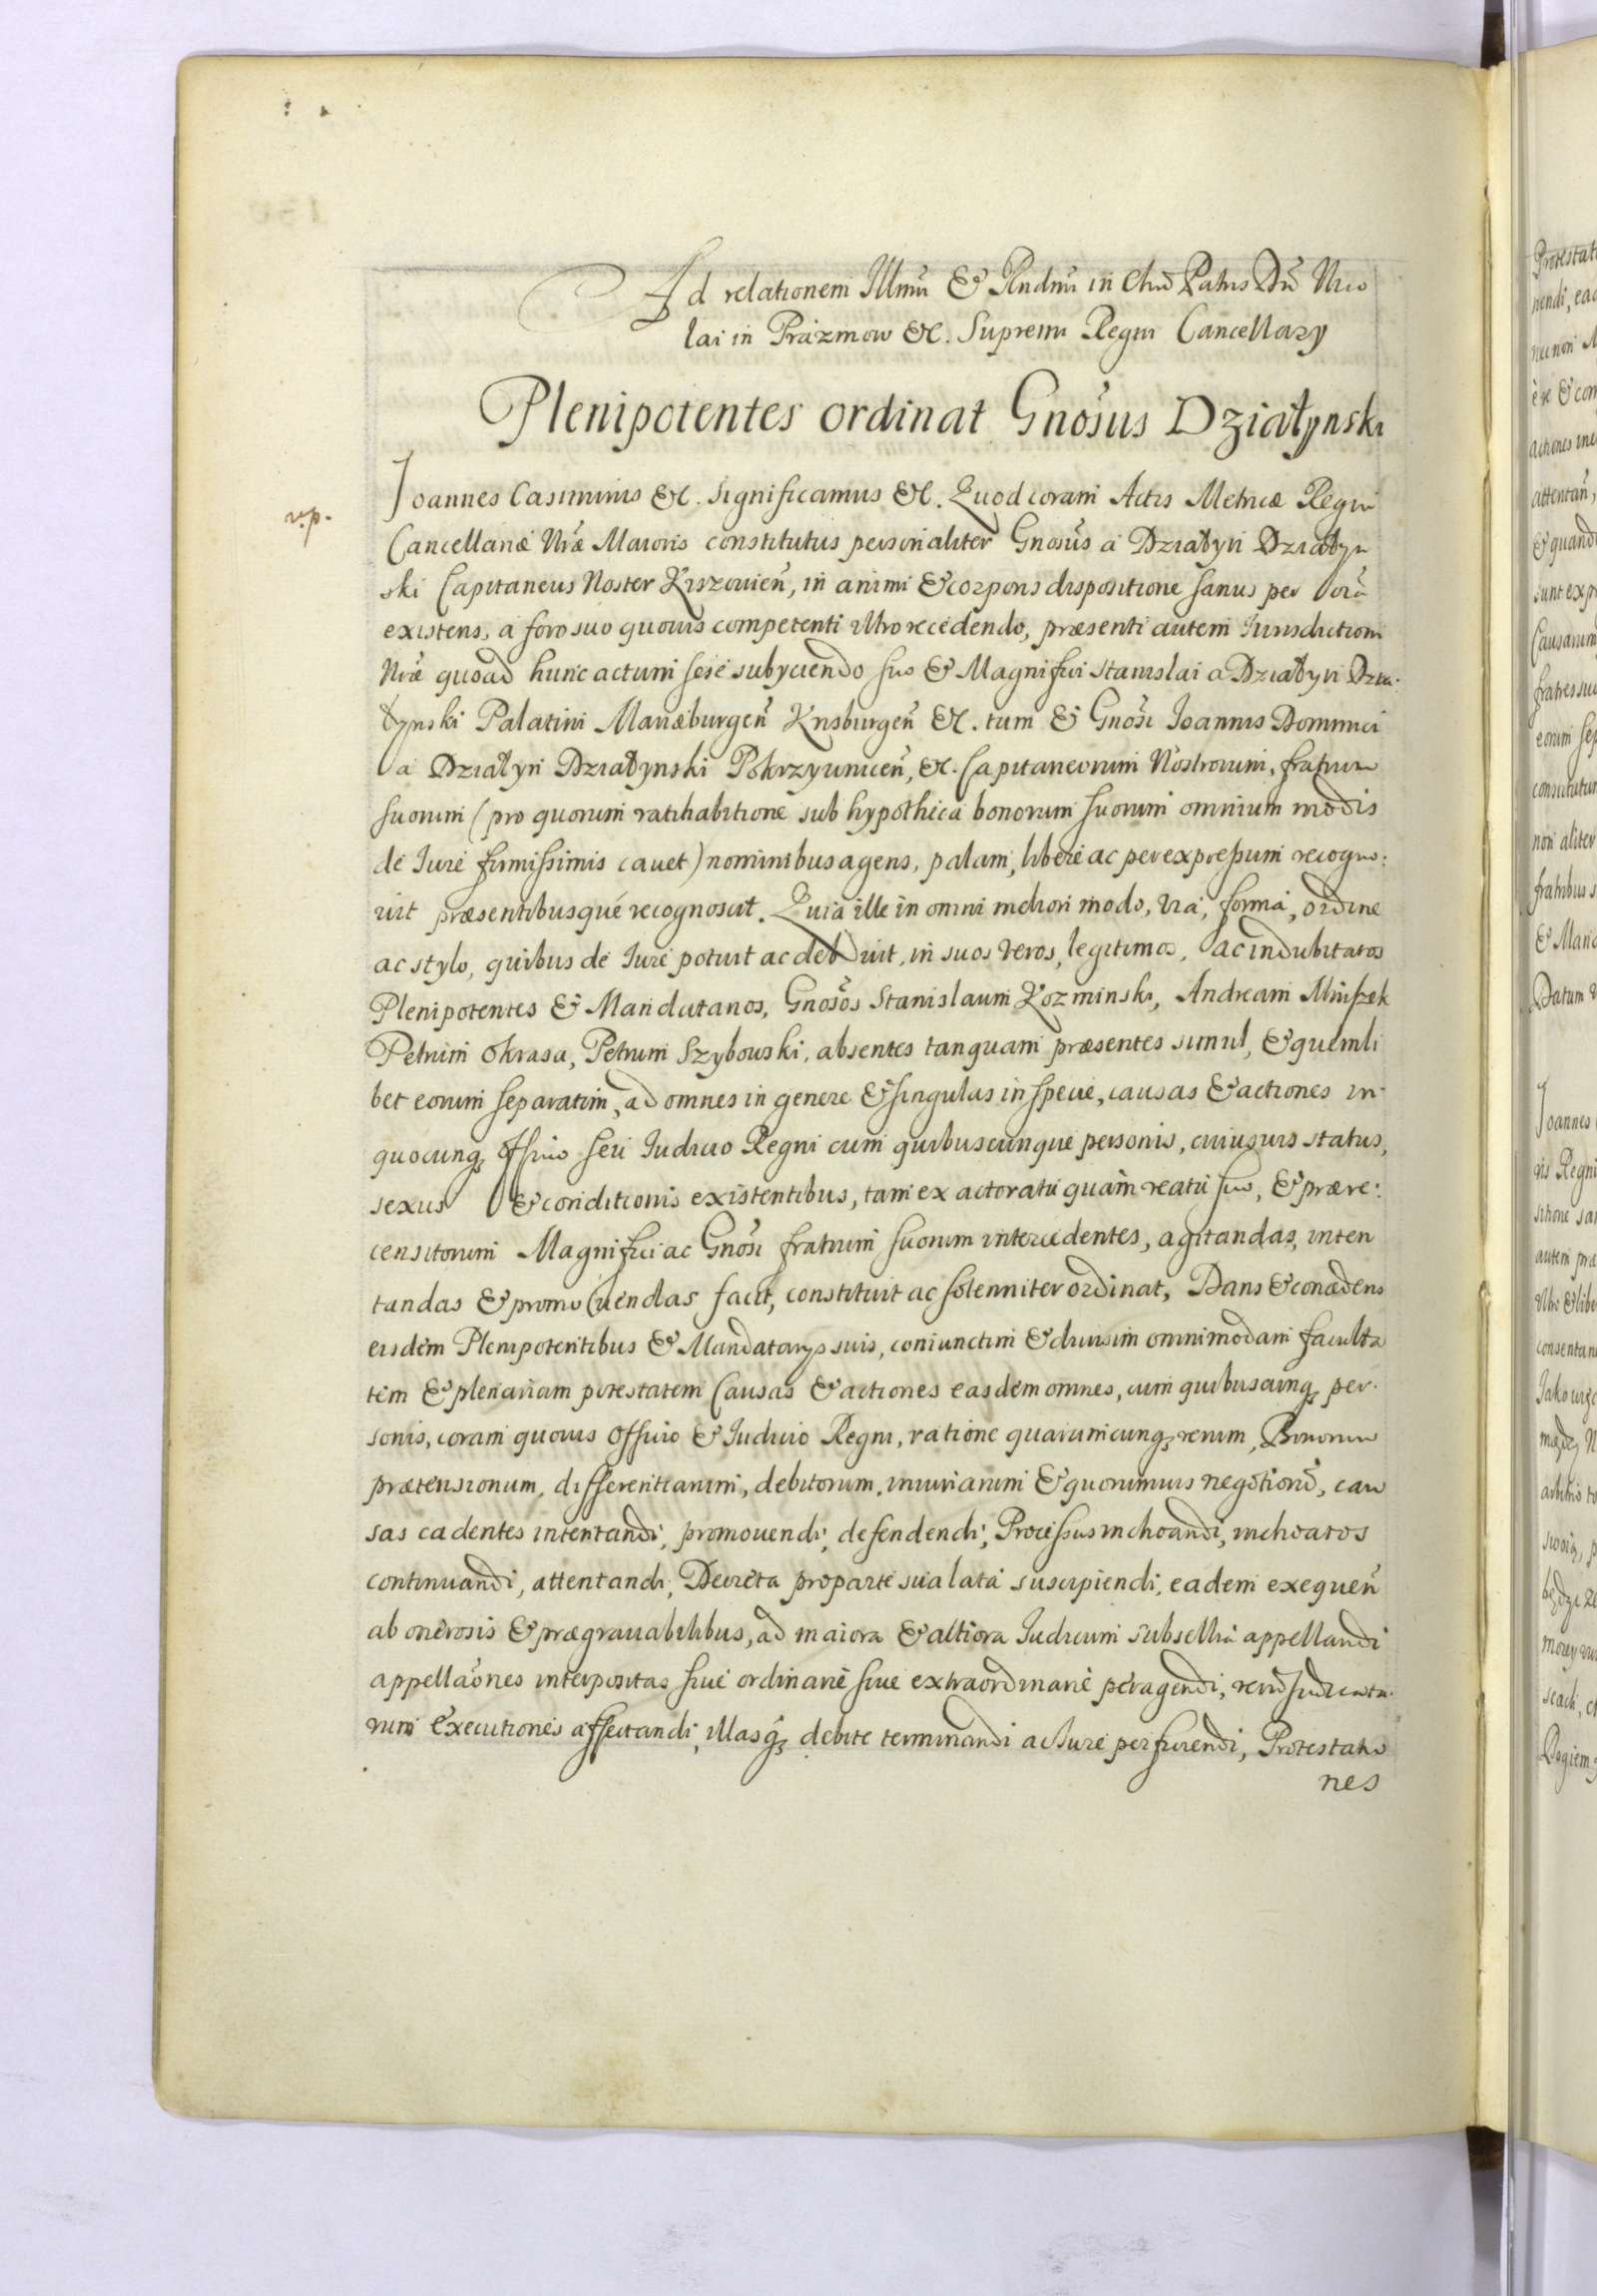 Ad relationem Illmi & Rndmi in Chro Patris Dni Nico
lai in Prazmow &c. Supremi Regni Cancellary
Plenipotentes ordinat Gnosus Działynski
v.p.
Joannes Casimirus &c. Significamus &c. Quod coram Actis Metricæ Regni
Cancellariæ Nræ Maioris constitutus personaliter Gnosus a Działyn Działyn
ski Capitaneus Noster Kiszovien, in animi & corporis dispositione sanus per oia
existens, a foro suo quovis competenti ultro recedendo, præsenti autem Iurisdictioni
Nræ quoad hunc actum sese subyciendo suo & Magnifici Stanislai a Działyn Dzia:
łynski Palatini Mariæburgen Krisburgen &c. tum & Gnosi Joannis Dominici
a Działyn Działynski Pokrzywnicen, &c. Capitaneorum Nostrorum, fratrum
suorum (pro quorum ratihabitione sub hypothica bonorum suorum omnium modis
de Iure firmissimis cavet) nominibus agens, palam, libere ac per expressum recogno:
vit præsentibusque recognoscit. Quia ille in omni meliori modo, via, forma, ordine
ac stylo, quibus de Iure potuit ac debuit, in suos veros, legitimos, ac indubitatos
Plenipotentes & Mandatarios, Gnosos Stanislaum Kozminski, Andream Miuszek
Petrum Okrasa, Petrum Szybowski, absentes tanquam præsentes simul, & quemli
bet eorum separatim, ad omnes in genere & singulas in specie, causas & actiones in
quocunq; Officio seu Iudicio Regni cum quibuscunque personis, cuiusvis status,
sexus & conditionis existentibus, tam ex actoratu quam reatu suo, & prære:
censitorum Magnifici ac Gnosi fratrum suorum intercedentes, agitandas, inten
tandas & promovendas facit, constituit ac solenniter ordinat, Dans & concedens
eisdem Plenipotentibus & Mandatarys suis, coniunctim & divisim omnimodam faculta
tem & plenariam potestatem Causas & actiones easdem omnes, cum quibuscunq; per
sonis, coram quovis Officio & Iudicio Regni, ratione quarumcunq; rerum, Bonorum
prætensionum, differentiarum, debitorum, iniuriarum & quorumvis negotioru, cau
sas cadentes intentandi, promovendi, defendendi, Processus inchoandi, inchoatos
continuandi, attentandi, Decreta pro parte sua lata suscipiendi, eadem exequen
ab onerosis & prægravabilibus, ad maiora & altiora Iudicium subsellia appellandi
appellaones interpositas sive ordinarie sive extraordinarie peragendi, reru Iudicata
rum executiones affectandi, illasq; debite terminandi ac Iure perfruendi, Protestatio
nes